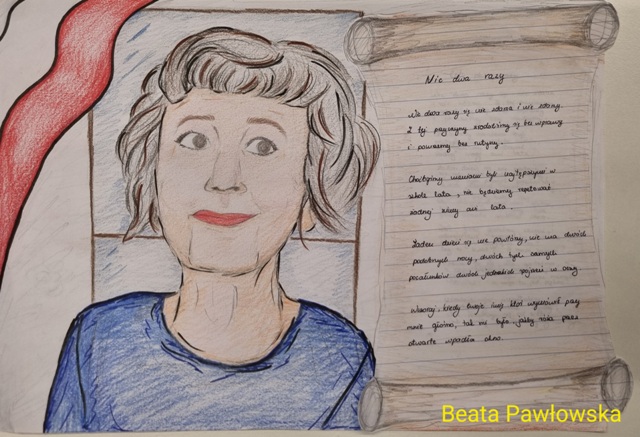 Nic dwa razy
dwa razy się nie zdarza i nie zdarzy.
Z tej przyczyny zrodziliśmy się bez wprawy
i pomrzemy bez rutyny.
Choćbyśmy uczniami byli najtępszymi w
szkole, nie będziemy repetować
żadnej zimy ani lata.
Żaden dzień się nie powtórzy, nie ma dwóch
podobnych nocy, dwóch tych samych
pocałunków dwóch jednakich spojrzeń w oczy.
Wczoraj, kiedy twoje imię ktoś wymówił przy
mnie głośno, tak mi było jakby róża przez
otwarte wpadła okno.
Beata Pawłowska